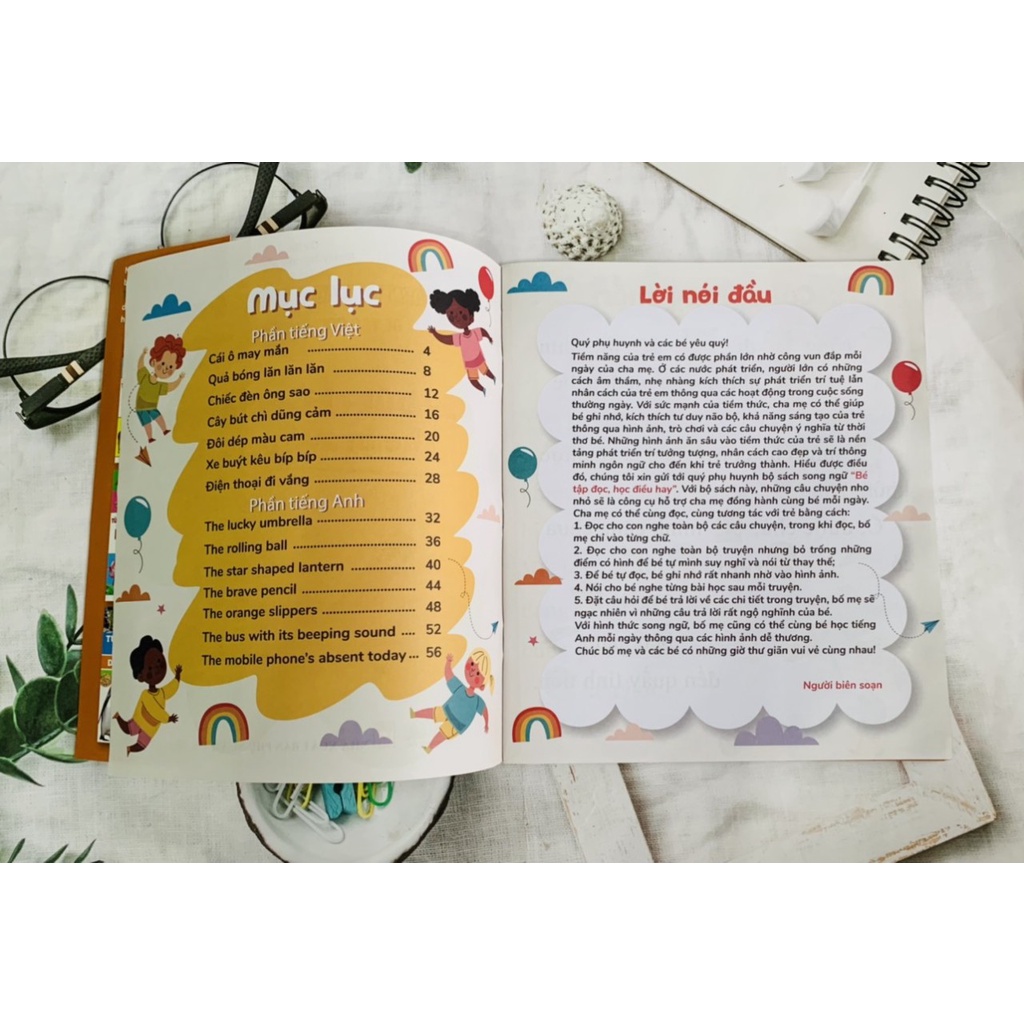 mục lục
Phần tiếng Việt
Cái ô may mắn ........ 4
Quả bóng lăn lăn lăn ........ 8
Chiếc đèn ông sao ........ 12
Cây bút chì dũng cảm ........ 16
Đôi dép màu cam ........ 20
Xe buýt kêu bíp bíp ........ 24
Điện thoại đi vắng ........ 28
Phần tiếng Anh
The lucky umbrella ........ 32
The rolling ball ........ 36
The star shaped lantern ........ 40
The brave pencil ........ 44
The orange slippers ........ 48
The bus with its beeping sound .... 52
The mobile phone's absent today ... 56
Lời nói đầu
Quý phụ huynh và các bé yêu quý!
Tiềm năng của trẻ em có được phần lớn nhờ công vun đắp mỗi
ngày của cha mẹ. Ở các nước phát triển, người lớn có những
cách âm thầm, nhẹ nhàng kích thích sự phát triển trí tuệ lẫn
nhân cách của trẻ em thông qua các hoạt động trong cuộc sống
thường ngày. Với sức mạnh của tiềm thức, cha mẹ có thể giúp
bé ghi nhớ, kích thích tư duy não bộ, khả năng sáng tạo của trẻ
thông qua hình ảnh, trò chơi và các câu chuyện ý nghĩa từ thời
thơ bé. Những hình ảnh ăn sâu vào tiềm thức của trẻ sẽ là nền
tảng phát triển trí tưởng tượng, nhân cách cao đẹp và trí thông
minh ngôn ngữ cho đến khi trẻ trưởng thành. Hiểu được điều
đó, chúng tôi xin gửi tới quý phụ huynh bộ sách song ngữ "Bé
tập đọc, học điều hay". Với bộ sách này, những câu chuyện nho
nhỏ sẽ là công cụ hỗ trợ cha mẹ đồng hành cùng bé mỗi ngày.
Cha mẹ có thể cùng đọc, cùng tương tác với trẻ bằng cách:
1. Đọc cho con nghe toàn bộ các câu chuyện, trong khi đọc, bố
mẹ chỉ vào từng chữ.
2. Đọc cho con nghe toàn bộ truyện nhưng bỏ trống những
điểm có hình để bé tự mình suy nghĩ và nói từ thay thế;
3. Để bé tự đọc, bé ghi nhớ rất nhanh nhờ vào hình ảnh.
4. Nói cho bé nghe từng bài học sau mỗi truyện.
5. Đặt câu hỏi để bé trả lời về các chi tiết trong truyện, bố mẹ sẽ
ngạc nhiên vì những câu trả lời rất ngộ nghĩnh của bé.
Với hình thức song ngữ, bố mẹ cũng có thể cùng bé học tiếng
Anh mỗi ngày thông qua các hình ảnh dễ thương.
Chúc bố mẹ và các bé có những giờ thư giãn vui vẻ cùng nhau!
Người biên soạn